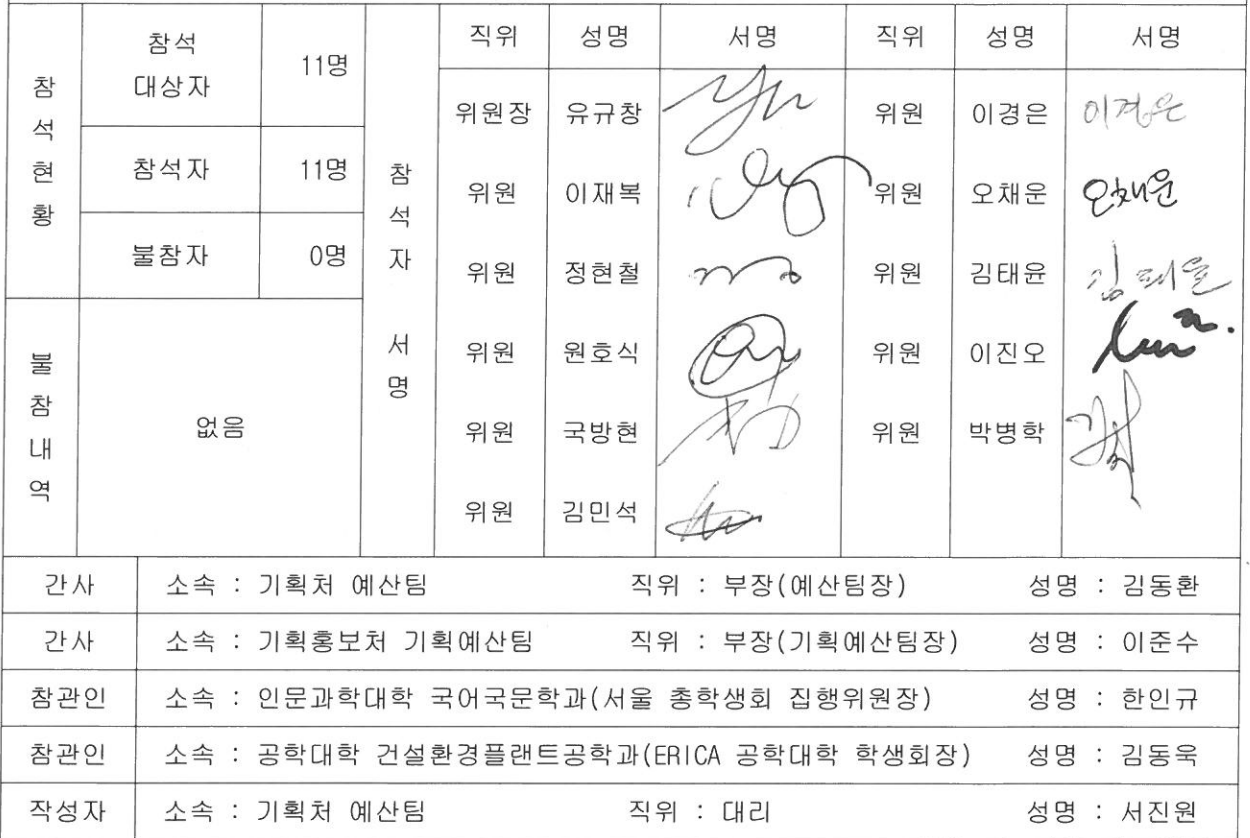 참석현황
참석 대상자 11명
참석자 11명
불참자 0명
불참내역
없음
참석자 서명
직위 성명 서명 직위 성명 서명
위원장 유규창 위원 이경은 이경은
위원 이재복 위원 오채운 오채운
위원 정현철 위원 김태윤 김태윤
위원 원호식 위원 이진오
위원 국방현 위원 박병학
위원 김민석
간사 소속 : 기획처 예산팀 직위 : 부장(예산팀장) 성명 : 김동환
간사 소속 : 기획홍보처 기획예산팀 직위 : 부장(기획예산팀장) 성명 : 이준수
참관인 소속 : 인문과학대학 국어국문학과(서울 총학생회 집행위원장) 성명 : 한인규
참관인 소속 : 공학대학 건설환경플랜트공학과(ERICA 공학대학 학생회장) 성명 : 김동욱
작성자 소속 : 기획처 예산팀 직위 : 대리 성명 : 서진원